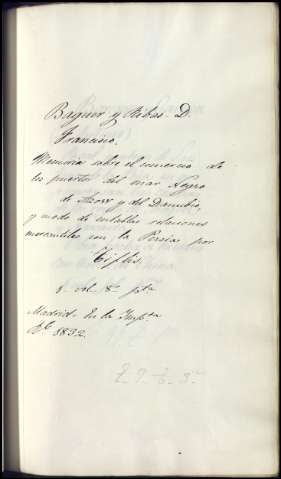 Baguer y Ribas. D.
Francisco.
Memoria sobre el comercio de
los puertos del mar Negro
de Azow y del Danubio,
y modo de entablar relaciones
mercantiles con la Persia por
Tiflis.
1. vol. 8º pta
Madrid. En la Impta
Rl. 1832.